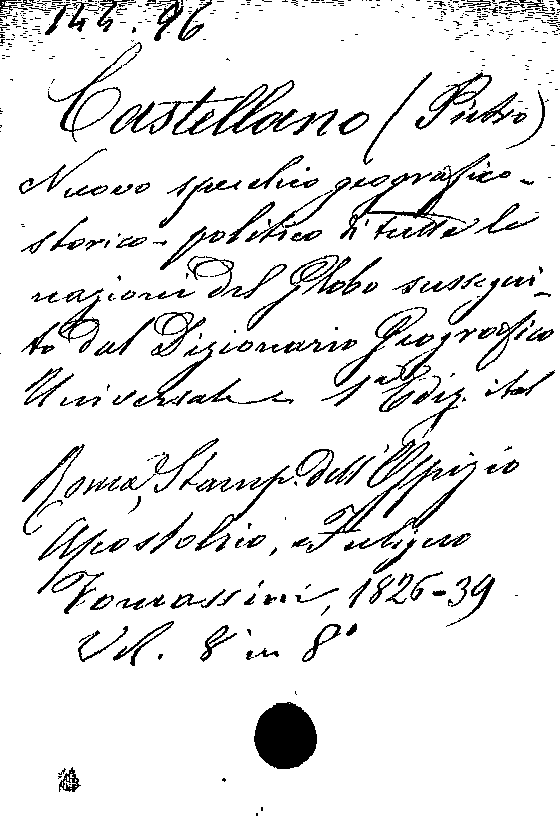 144.96
Castellano (Pietro)
Nuovo specchio geografico-
storico-politico di tutte le
nazioni del Globo sussegui-
to dal Dizionario Geografico
Universale 1ª Ediz. ital
Roma, Stamp. dell'Ospizio
Apostolico, e Fuligno
Tomassini, 1826-39
Vol. 8 in 8°